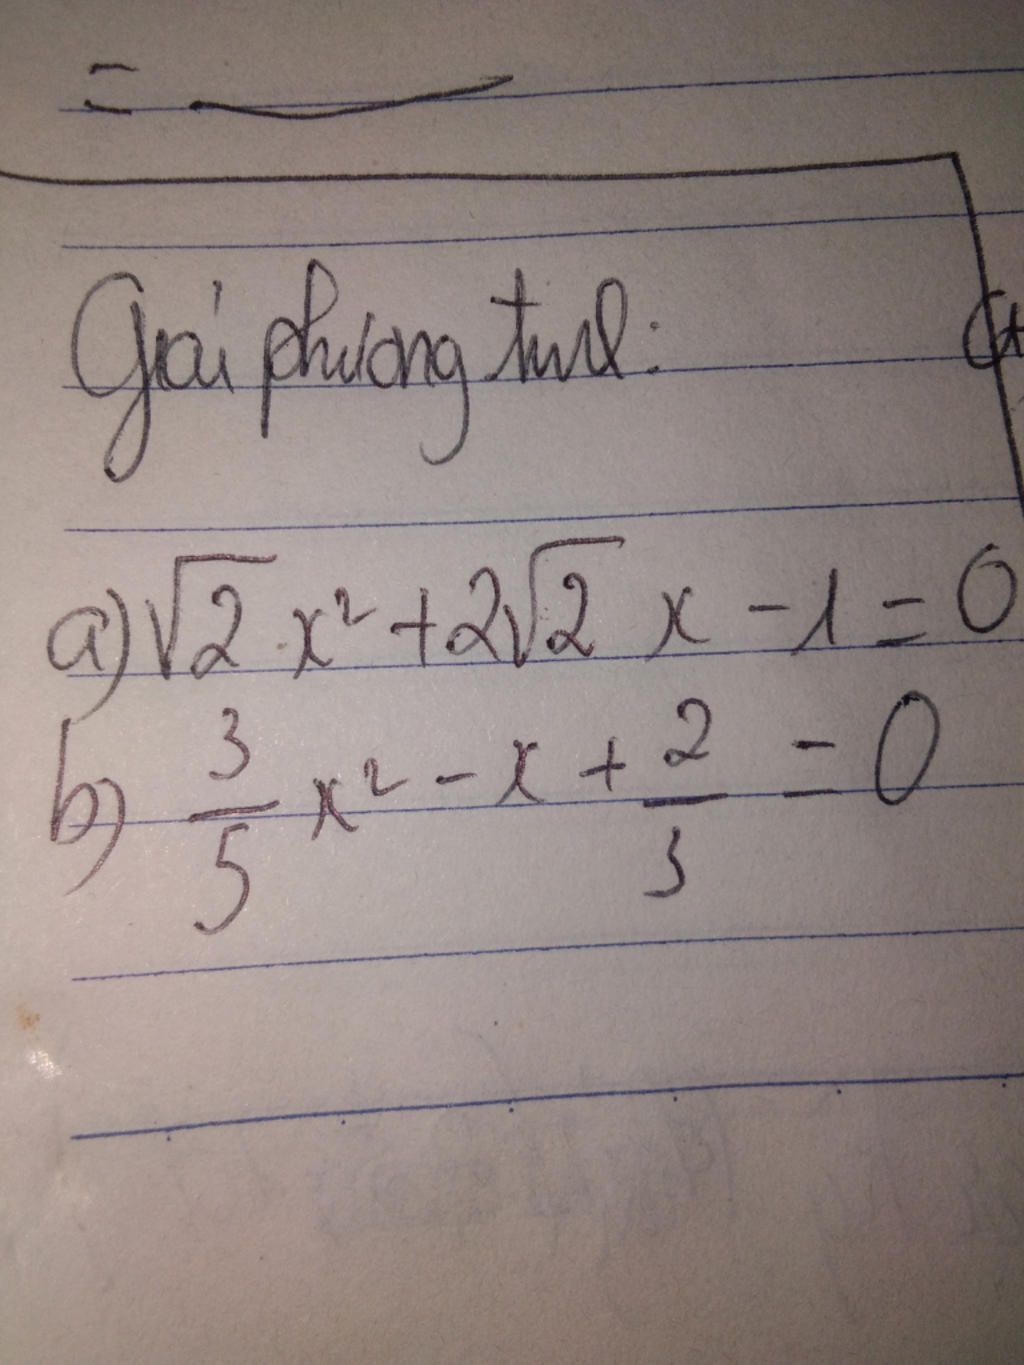 =
Giải phương trình:
a) √2 . x² + 2√2 x - 1 = 0
b) 3/5 x² - x + 2/3 = 0